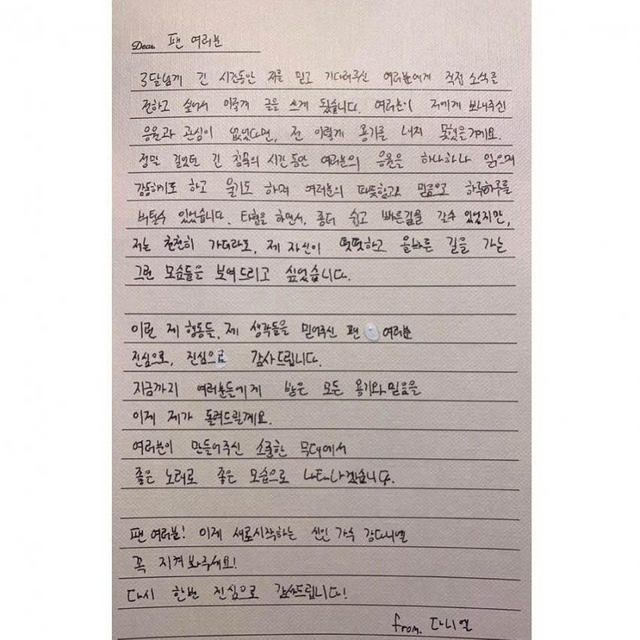 Dear. 팬 여러분
3달넘게 긴 시간동안 저를 믿고 기다려주신 여러분에게 직접 소식을
전하고 싶어서 이렇게 글을 쓰게 됐습니다. 여러분이 저에게 보내주신
응원과 관심이 없었다면, 전 이렇게 용기를 내지 못했을거에요.
정말 길었던 긴 침묵의 시간동안 여러분의 응원을 하나하나 읽으며
감동하기도 하고 울기도 하며 여러분의 따뜻함과 믿음으로 하루하루를
버틸수 있었습니다. 타협을 하면서, 좀더 쉽고 빠른길을 갈수 있었지만,
저는 천천히 가더라도, 제 자신이 떳떳하고 올바른 길을 가는
그런 모습들을 보여드리고 싶었습니다.
이런 제 행동들, 제 생각들을 믿어주신 팬 여러분
진심으로, 진심으로 감사드립니다.
지금까지 여러분들에게 받은 모든 용기와 믿음을
이제 제가 돌려드릴께요.
여러분이 만들어주신 소중한 무대에서
좋은 노래로 좋은 모습으로 나타나겠습니다.
팬 여러분! 이제 새로시작하는 신인 가수 강다니엘
꼭 지켜봐주세요!
다시 한번 진심으로 감사드립니다!
from. 다니엘